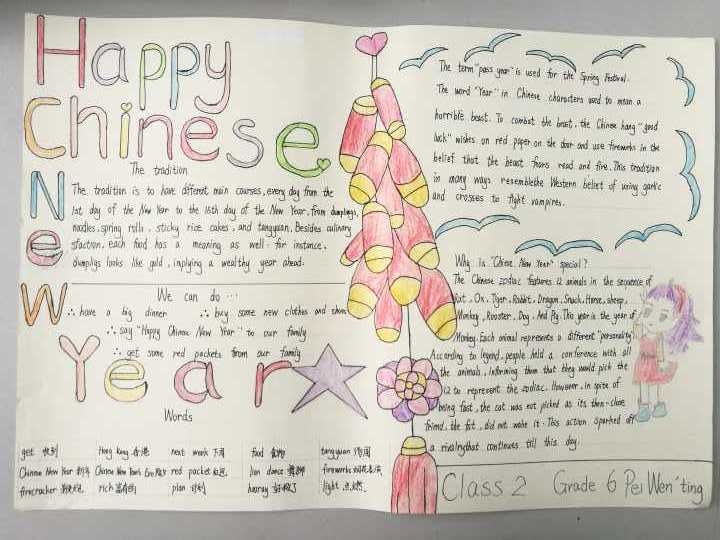 Happy
Chinese
New
Year
The tradition
The tradition is to have different main courses, every day from the
1st day of the New Year to the 15th day of the New Year, from dumplings,
noodles, spring rolls, sticky rice cakes, and tangyuan. Besides culinary
sfaction, each food has a meaning as well. for instance,
dumpligs looks like gold, inplying a wealthy year ahead.
We can do ...
∴ have a big dinner ∴ buy some new clothes and shoes
∴ say "Happy Chinese New Year" to our family
∴ get some red packets from our family
Words
get 收到 Hong Kong 香港 next week 下周 food 食物 tangyuan 汤圆
Chinese New Year 新年 Chinese New Year's Eve 除夕 red packet 红包 lion dance 舞狮 fireworks
firecracker rich 富有的 plan 计划 hooray 好极了 light 点燃
The term "pass year" is used for the Spring Festival.
The word "Year" in Chinese characters used to mean a
horrible beast. To combat the beast, the Chinese hang "good
luck" wishes on red paper on the door and use fireworks in the
belief that the beast fears read and fire. This tradition
in many ways resemblethe Western belief of using garlic
and crosses to fight vampires.
Why is "Chinese New Year" special?
The Chinese zodiac features 12 animals in the sequence of
Rat, Ox, Tiger, Rabbit, Dragon, Snack, Horse, sheep,
Monkey, Rooster, Dog, And Pig. This year is the year of
Monkey. Each animal represents a different "personality".
According to legend, people held a conference with all
the animals, informing them that they would pick the
12 to represent the zodiac. However, in spite of
being fast, the cat was not picked as its then-close
friend, the fat, did not wake it. This action sparked off
a rivalrythat continues till this day.
Class 2 Grade 6 Pei Wen'ting